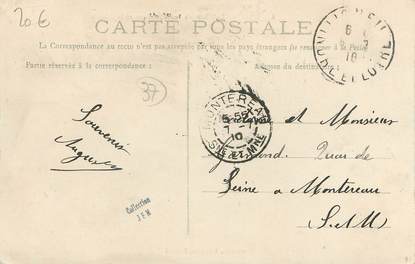 20€
CARTE POSTALE
La Correspondance au recto n'est pas acceptée par tous les pays étrangers (se renseigner à la Poste)
Partie réservée à la correspondance :
Adresse du destinataire :
37
MONTEREAU
5-55
7-1
10
SNE ET MNE
INDRE ET LOIRE
6
10
Souvenir
et Monsieur
Quai de
Seine a Montereau
S-et-M
Collection
J F M